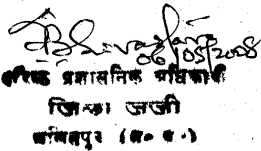 06/05/2008
वरिष्ठ प्रशासनिक अधिकारी
जिला जजी
ललितपुर (उ० प्र०)